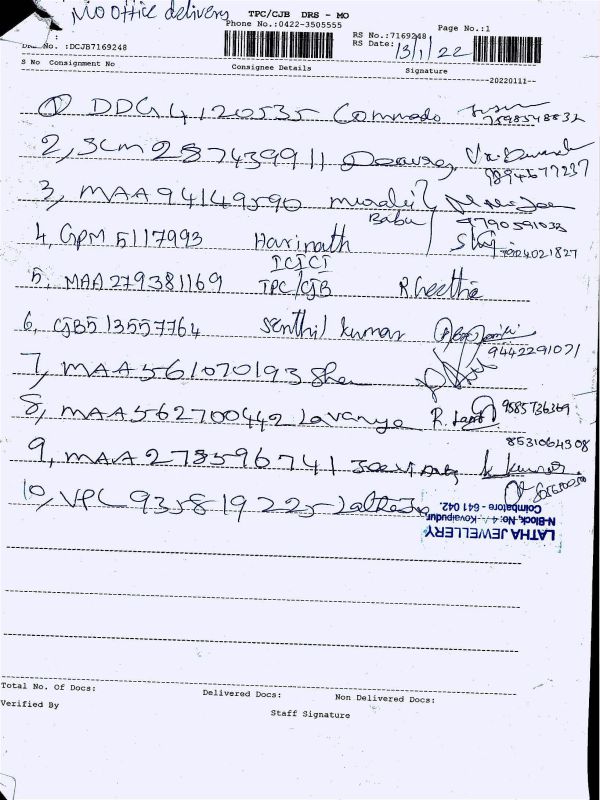 MO office delivery TPC/CJB DRS - MO
Phone No.:0422-3505555 Page No.:1
RS No.:7169248
No. :DCJB7169248 RS Date: 13/1/22
S No Consignment No Consignee Details Signature
--20220111--
1 DDG4120535 Commado 7598548832
2, SCM287439911
3, MAA94149590 murali
Babu 9790591033
4, GPM5117993 Harinath
ICICI
5, MAA279381169 TPC/CJB R.Geetha
6, CJB513557764 Senthil kumar
9442291071
7, MAA561070193
8, MAA562700442 Lavanya 9585736369
8531064308
9, MAA278596741 k. kumar
10, VPL93581922
LATHA JEWELLERY
N-Block, No: 4 Kovaipudur,
Coimbatore - 641 042.
Total No. Of Docs: Delivered Docs: Non Delivered Docs:
Verified By Staff Signature